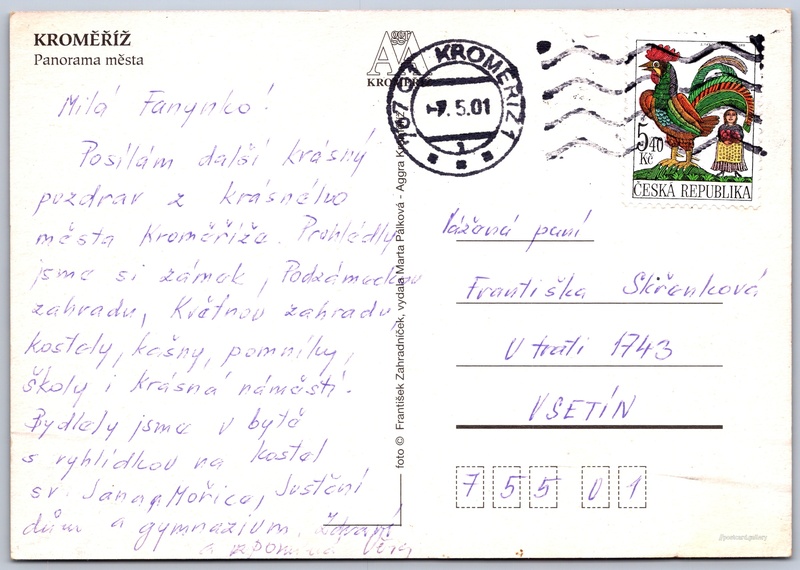 KROMĚŘÍŽ
Panorama města
Milá Fanynko!
Posílám další krásný
pozdrav z krásného
města Kroměříže. Prohlédly
jsme si zámek, Podzámeckou
zahradu, Květnou zahradu,
kostely, kašny, pomníky,
školy i krásná náměstí.
Bydlely jsme v bytě
s vyhlídkou na kostel
sv. Jana, Mořice, Justiční
dům a gymnazium. Zdraví
a vzpomíná Věra
aggr
AA
KROMĚŘÍŽ
foto © František Zahradníček, vydala Marta Pálková - Aggra Kroměříž
767 01 KROMĚŘÍŽ 1
-7.5.01
1
5,40
Kč
ČESKÁ REPUBLIKA
Vážená paní
Františka
U trati 1743
VSETÍN
755 01
@postcard.gallery